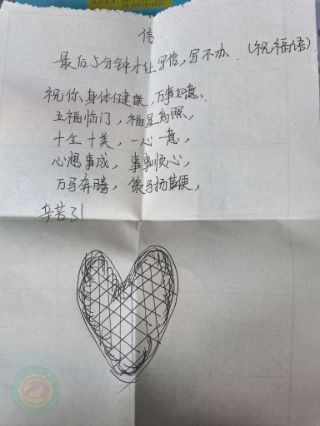 信
最后5分钟才让写信,写不办.(祝福语)
祝你、身体健康,万事如意、
五福临门,福星高照,
十全十美,一心一意,
心想事成,事事顺心,
万马奔腾,策马扬鞭,
辛苦了!